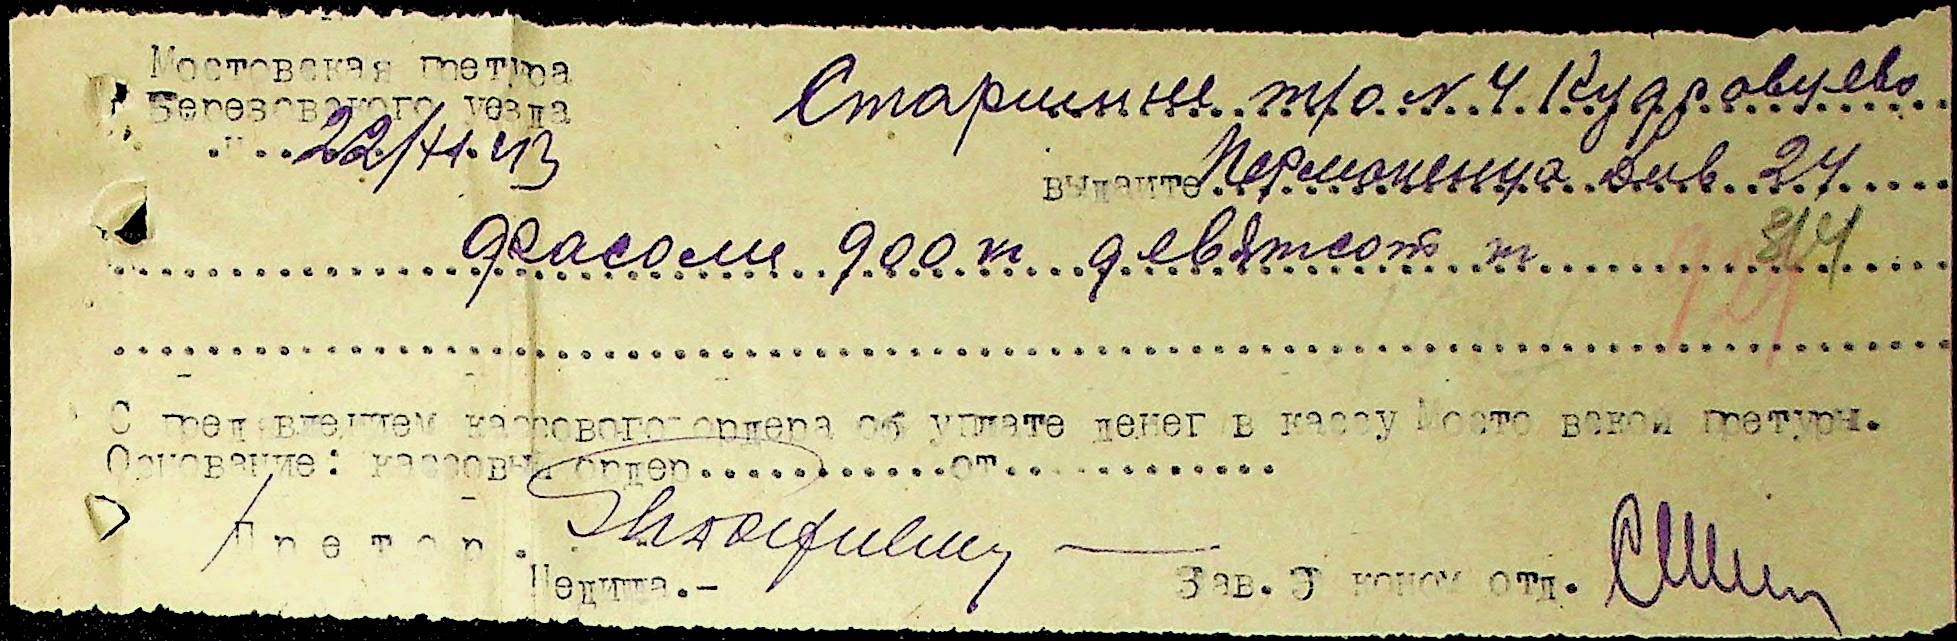 Мостовская претура
Березовского уезда
22/XI 43
Старшине т/о № 4 Кудрявцево
выдайте
фасоли 900 к девятсот к
814
С пред'явлением кассового ордера об уплате денег в кассу Мосто вской претуры.
Основание: кассовый ордер............от..............
Претор.
Недица.-
Зав. Э коном отд.